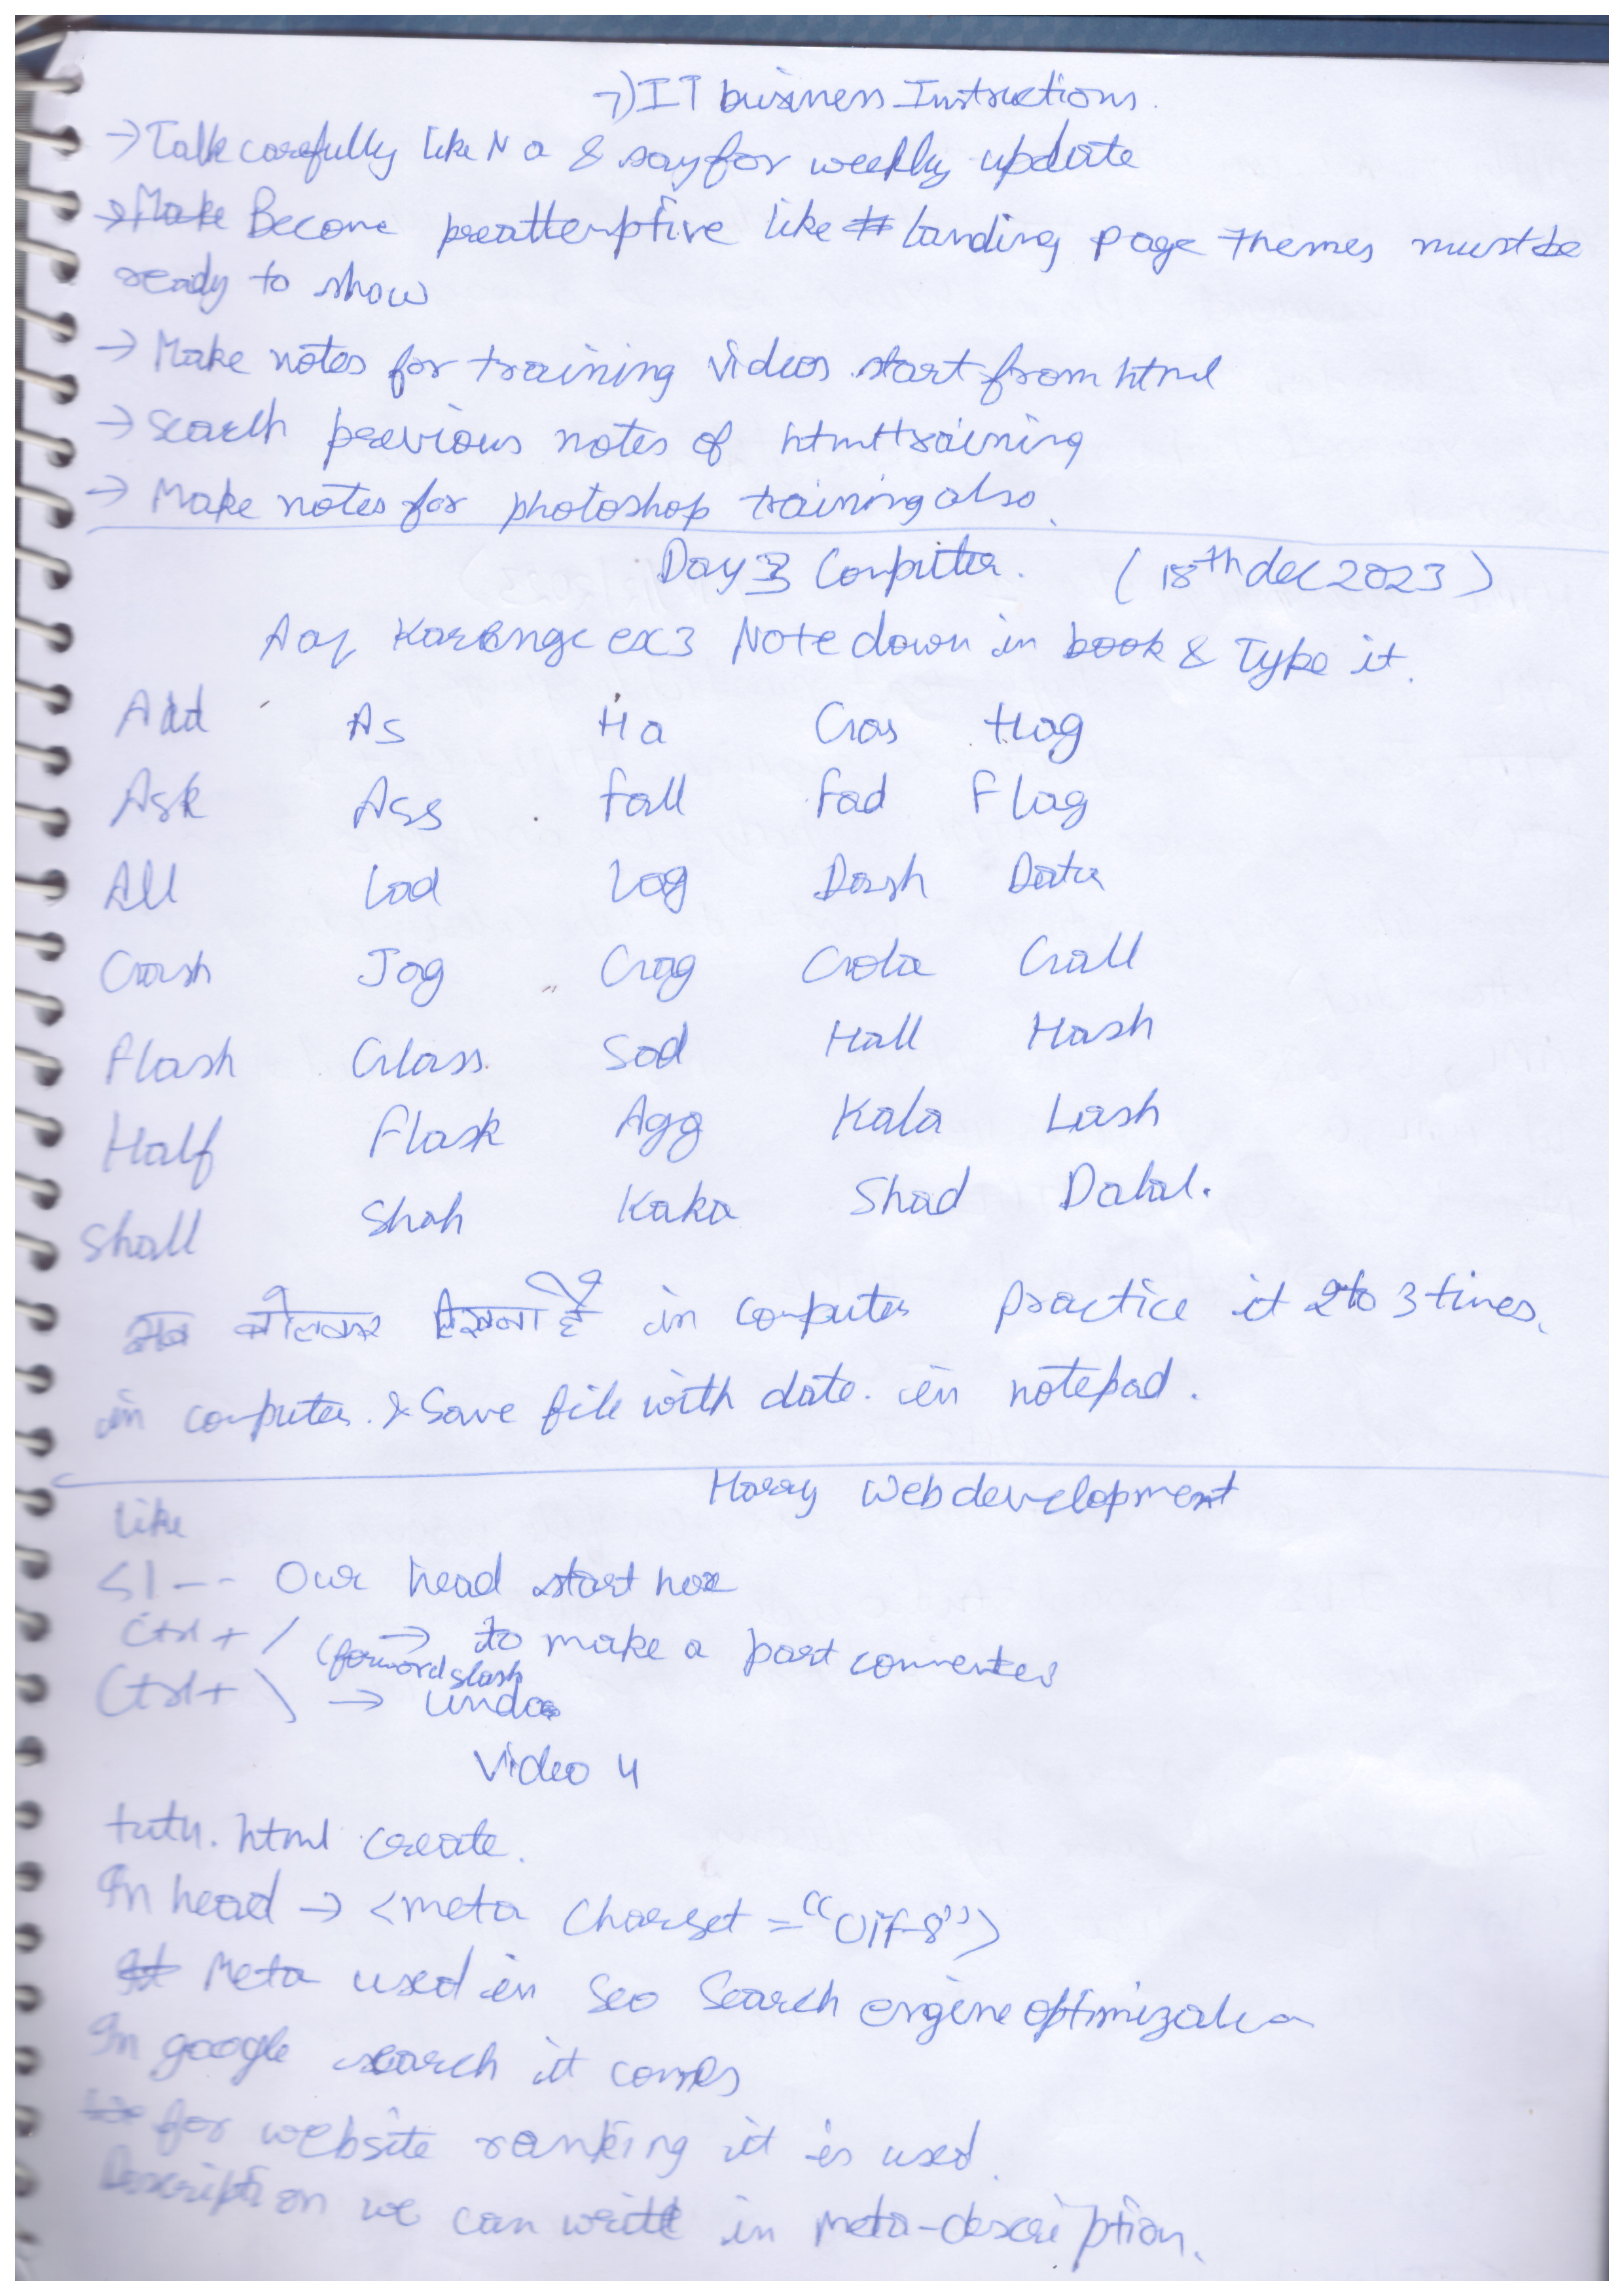 → IT business Instructions.
→ Talk carefully like N a & say for weekly update
→ Make Become preattemptive like # landing page themes must be
ready to show
→ Make notes for training videos start from html
→ Search previous notes of html training
→ Make notes for photoshop training also.
Day 3 Computer. (18th dec 2023)
Aap Karenge ex 3 Note down in book & Type it.
Add As Ha Gas Hag
Ask Ass Fall Fad Flag
All Lad Lag Dash Data
Gash Jag Gag Gala Gall
Flash Glass. Sad Hall Hash
Half Flask Agg Kala Lash
Shall Shah Kaka Shad Dalal.
सब बोलकर देखना है in computer practice it 2 to 3 times.
in computer. & Save file with date. in notepad.
Harry Web development
like
<!-- Our head start here
Ctrl + / (forward slash → to make a part commented
Ctrl + \ → undo
Video 4
tut4.html create.
In head → <meta Charset = "Utf-8">
Meta used in Seo Search engine optimization
In google search it comes
for website ranking it is used.
Description we can write in meta-description.